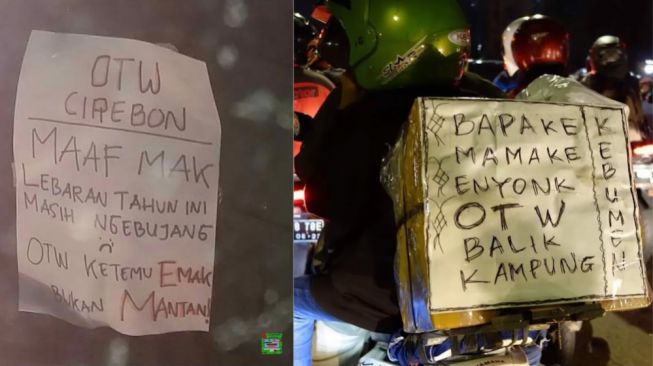 OTW
CIREBON
MAAF MAK
LEBARAN TAHUN INI
MASIH NGEBUJANG
OTW KETEMU EMAK
BUKAN MANTAN!
BAPAKE
MAMAKE
ENYONK
OTW
BALIK
KAMPUNG
KEBUMEN